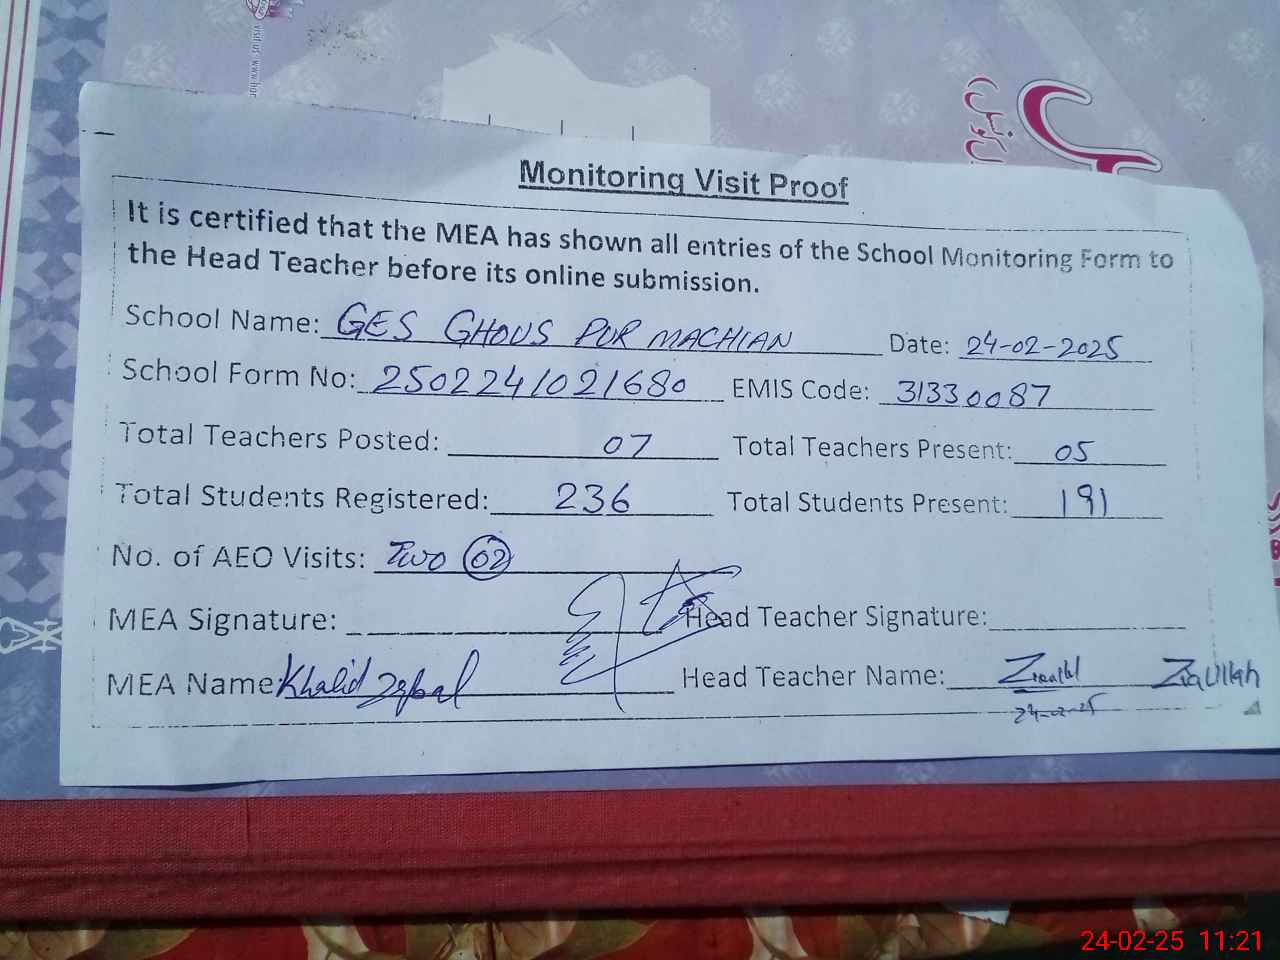 visit us: www.hor
Monitoring Visit Proof
It is certified that the MEA has shown all entries of the School Monitoring Form to
the Head Teacher before its online submission.
School Name: GES GHOUS PUR MACHIAN Date: 24-02-2025
School Form No: 2502241021680 EMIS Code: 31330087
Total Teachers Posted: 07 Total Teachers Present: 05
Total Students Registered: 236 Total Students Present: 191
No. of AEO Visits: Two 02
MEA Signature: Head Teacher Signature:
MEA Name: Khalid Iqbal Head Teacher Name: Ziaullah
24-02-25
24-02-25 11:21